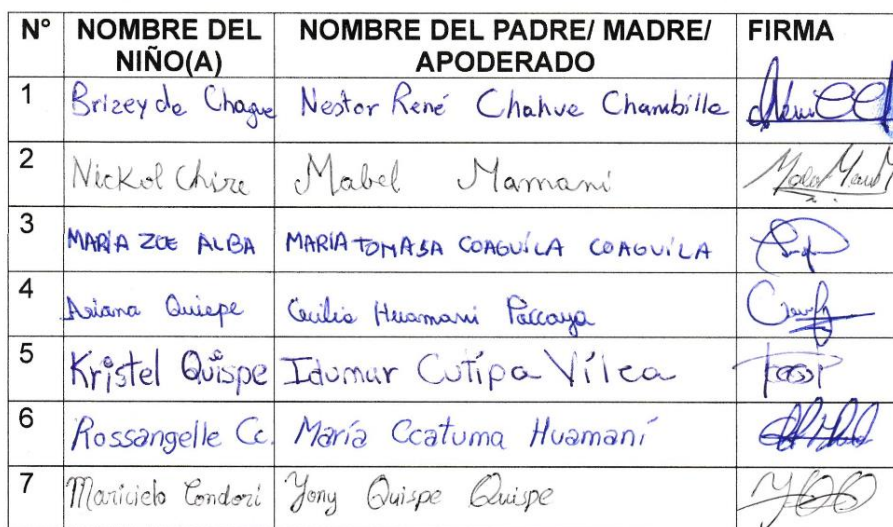 N° NOMBRE DEL NIÑO(A) NOMBRE DEL PADRE/ MADRE/ APODERADO FIRMA
1 Brizeyda Chague Nestor René Chahve Chambilla
2 Nickol Chire Mabel Mamani
3 MARÍA ZOE ALBA MARÍA TOMASA COAGUILA COAGUILA
4 Ariana Quispe Cecilia Huamani Paccaya
5 Kristel Quispe Idumar Cutipa Vilca
6 Rossangelle Cc. María Ccatuma Huamaní
7 Maricielo Condori Yony Quispe Quispe